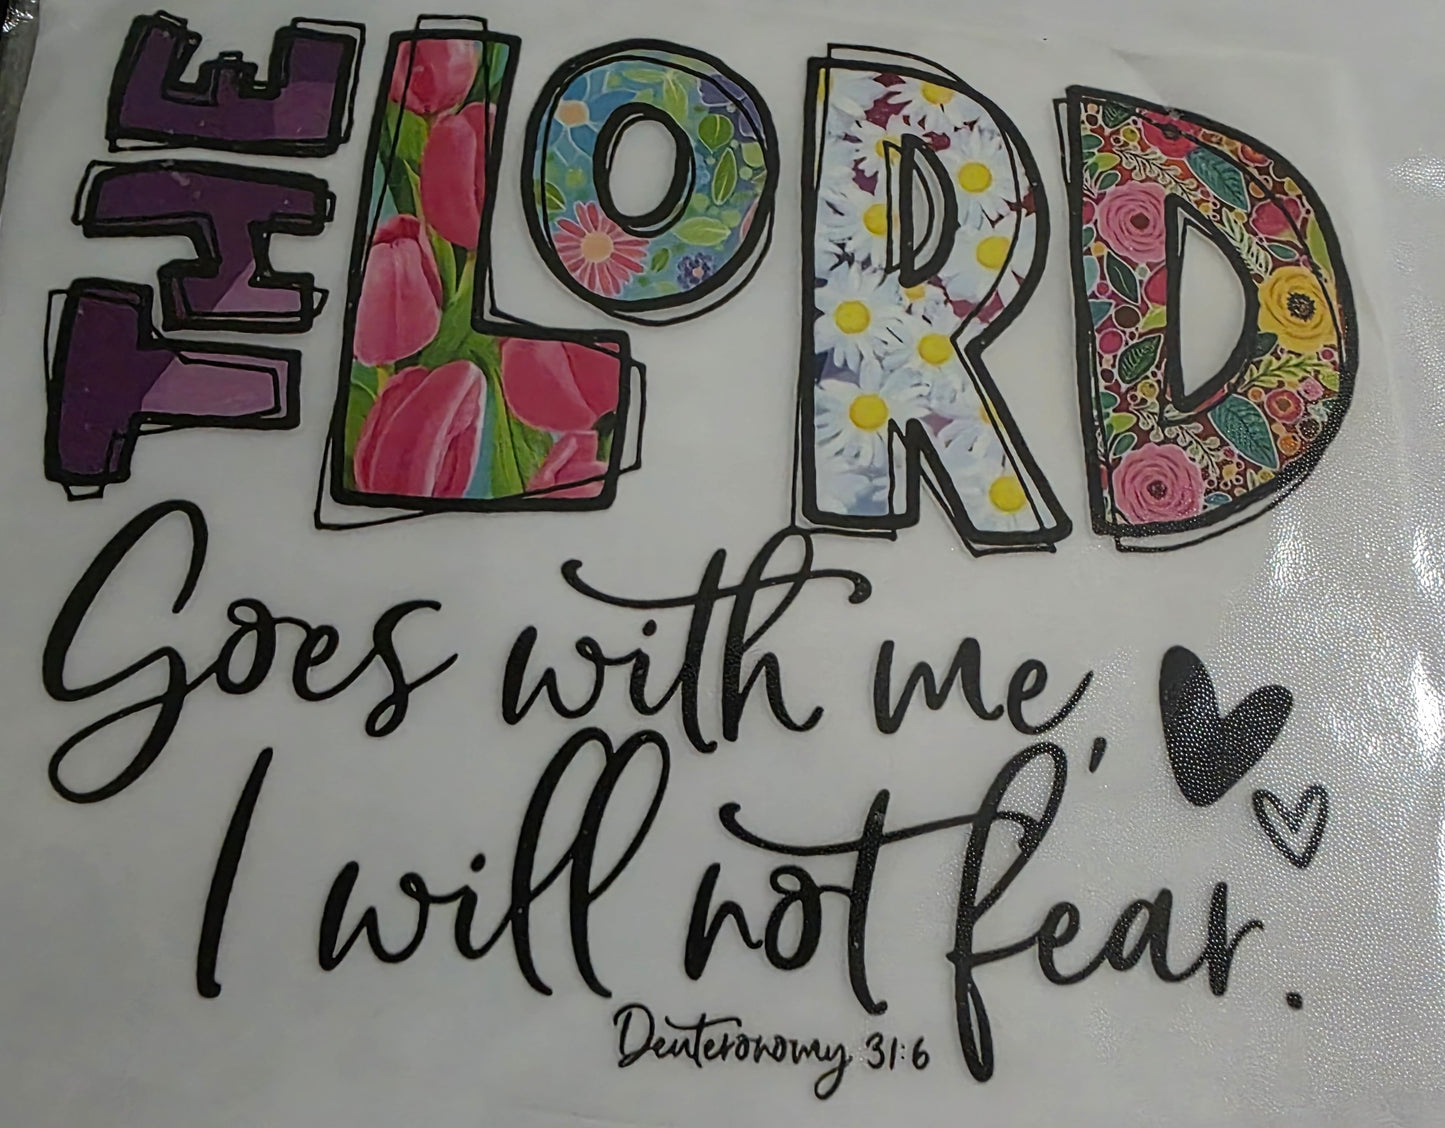 THE LORD
Goes with me,
I will not fear.
Deuteronomy 31:6